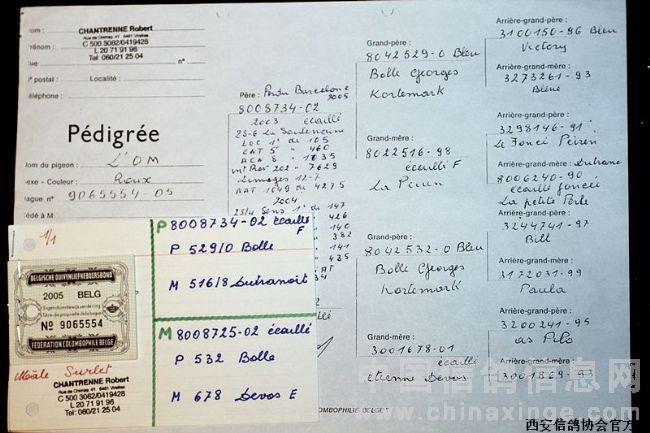 CHANTRENNE Robert
Rue de Chimay, 41 6461 Virelles
C 500 3062/0419428
L 20 71 91 96
Tel: 060/21 25 04
n°
Localité :
Pédigrée
L'OM
Roux
9065554-05
Père : Perdu Barcelone
2005
8008734-02
2003 écaillé
28-6 La Souterraine
LOC 1° de 105
460
1035
7629
Limoges 12-7
NAT 1049 de 4275
2004
25/4 Sens 1° de 147
426
140
382
141
435
Grand-père :
8042529-0 Bleu
Bolle Georges
Kortemark
Grand-mère :
8022516-98
écaillé F
La Peiren
Grand-père :
8042532-0 Bleu
Bolle Georges
Kortemark
Grand-mère :
3001678-01
écaillé
Etienne Devos
Arrière-grand-père :
3100150-96 Bleu
Victory
Arrière-grand-mère :
3273261-93
Bleue
Arrière-grand-père :
3298146-91
Le Foncé Peiren
Arrière-grand-mère :
8006240-90
écaillé foncée
La petite Perle
Arrière-grand-père :
3244741-97
Bill
Arrière-grand-mère :
3172031-99
Paula
Arrière-grand-père :
3200241-95
as Pilo
Arrière-grand-mère :
3001869-93
1/1
BELGISCHE DUIVENLIEFHEBBERSBOND
2005 BELG
Eigendomstitel der duif
Titre de propriété du pigeon
No 9065554
FEDERATION COLOMBOPHILE BELGE
Mâle Surlet
CHANTRENNE Robert
Rue de Chimay, 41 6461 Virelles
C 500 3062/0419428
L 20 71 91 96
Tel: 060/21 25 04
P 8008734-02 écaillé
F
P 529/0 Bolle
M 516/8 Dutranoit
M 8008725-02 écaillé
P 532 Bolle
M 678 Devos E
COLOMBOPHILE BELGE
中国信鸽信息网
www.chinaxinge.com
西安信鸽协会官方